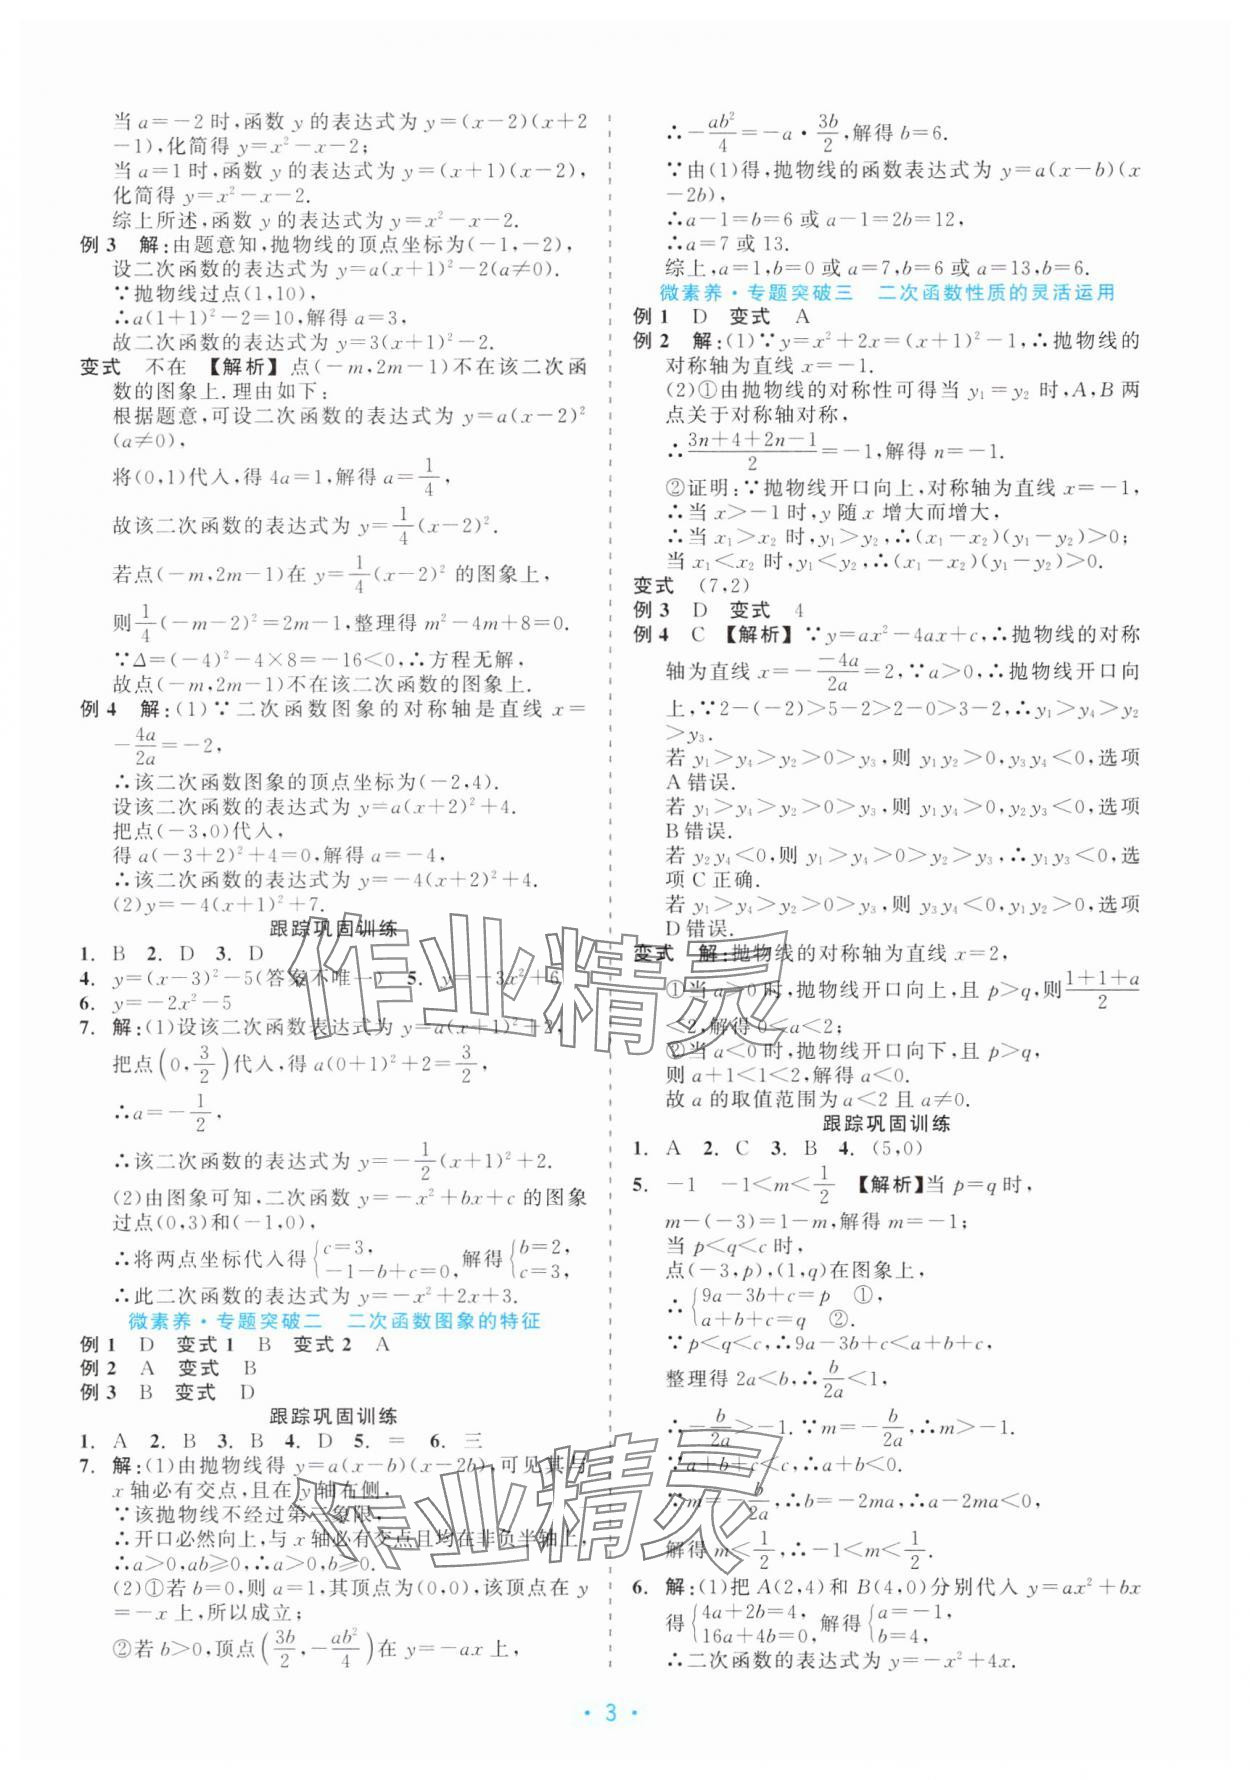 当 a=-2 时,函数 y 的表达式为 y=(x-2)(x+2
-1),化简得 y=x²-x-2;
当 a=1 时,函数 y 的表达式为 y=(x+1)(x-2),
化简得 y=x²-x-2.
综上所述,函数 y 的表达式为 y=x²-x-2.
例 3 解:由题意知,抛物线的顶点坐标为(-1,-2),
设二次函数的表达式为 y=a(x+1)²-2(a≠0).
∵抛物线过点(1,10),
∴a(1+1)²-2=10,解得 a=3,
故二次函数的表达式为 y=3(x+1)²-2.
变式 不在 【解析】点(-m,2m-1)不在该二次函
数的图象上.理由如下:
根据题意,可设二次函数的表达式为 y=a(x-2)²
(a≠0),
将(0,1)代入,得 4a=1,解得 a=1/4,
故该二次函数的表达式为 y=1/4(x-2)².
若点(-m,2m-1)在 y=1/4(x-2)² 的图象上,
则1/4(-m-2)²=2m-1,整理得 m²-4m+8=0.
∵Δ=(-4)²-4×8=-16<0,∴方程无解,
故点(-m,2m-1)不在该二次函数的图象上.
例 4 解:(1)∵二次函数图象的对称轴是直线 x=
-4a/2a=-2,
∴该二次函数图象的顶点坐标为(-2,4).
设该二次函数的表达式为 y=a(x+2)²+4.
把点(-3,0)代入,
得 a(-3+2)²+4=0,解得 a=-4,
∴该二次函数的表达式为 y=-4(x+2)²+4.
(2)y=-4(x+1)²+7.
跟踪巩固训练
1. B 2. D 3. D
4. y=(x-3)²-5(答案不唯一) 5. y=-3x²+6
6. y=-2x²-5
7. 解:(1)设该二次函数表达式为 y=a(x+1)²+2,
把点(0,3/2)代入,得 a(0+1)²+2=3/2,
∴a=-1/2,
∴该二次函数的表达式为 y=-1/2(x+1)²+2.
(2)由图象可知,二次函数 y=-x²+bx+c 的图象
过点(0,3)和(-1,0),
∴将两点坐标代入得{c=3, -1-b+c=0, 解得{b=2, c=3,
∴此二次函数的表达式为 y=-x²+2x+3.
微素养·专题突破二 二次函数图象的特征
例 1 D 变式 1 B 变式 2 A
例 2 A 变式 B
例 3 B 变式 D
跟踪巩固训练
1. A 2. B 3. B 4. D 5. = 6. 三
7. 解:(1)由抛物线得 y=a(x-b)(x-2b),可见其与
x 轴必有交点,且在 y 轴右侧,
∵该抛物线不经过第三象限,
∴开口必然向上,与 x 轴必有交点且均在非负半轴上,
∴a>0,ab≥0,∴b≥0.
(2)①若 b=0,则 a=1,其顶点为(0,0),该顶点在 y
=-x 上,所以成立;
②若 b>0,顶点(3b/2,-ab²/4)在 y=-ax 上,
∴-ab²/4=-a·3b/2,解得 b=6.
∵由(1)得,抛物线的函数表达式为 y=a(x-b)(x
-2b),
∴a-1=b=6 或 a-1=2b=12,
∴a=7 或 13.
综上,a=1,b=0 或 a=7,b=6 或 a=13,b=6.
微素养·专题突破三 二次函数性质的灵活运用
例 1 D 变式 A
例 2 解:(1)∵y=x²+2x=(x+1)²-1,∴抛物线的
对称轴为直线 x=-1.
(2)①由抛物线的对称性可得当 y₁=y₂ 时,A,B 两
点关于对称轴对称,
∴(3n+4+2n-1)/2=-1,解得 n=-1.
②证明:∵抛物线开口向上,对称轴为直线 x=-1,
∴当 x>-1 时,y 随 x 增大而增大,
∴当 x₁>x₂ 时,y₁>y₂,∴(x₁-x₂)(y₁-y₂)>0;
当 x₁<x₂ 时,y₁<y₂,∴(x₁-x₂)(y₁-y₂)>0.
变式 (7,2)
例 3 D 变式 4
例 4 C 【解析】∵y=ax²-4ax+c,∴抛物线的对称
轴为直线 x=-(-4a)/2a=2,∵a>0,∴抛物线开口向
上,∵2-(-2)>5-2>2-0>3-2,∴y₁>y₄>y₂
>y₃.
若 y₁>y₄>y₂>0>y₃,则 y₁y₂>0,y₃y₄<0,选项
A 错误.
若 y₁>y₄>y₂>0>y₃,则 y₁y₄>0,y₂y₃<0,选项
B 错误.
若 y₂y₄<0,则 y₁>y₄>0>y₂>y₃,∴y₁y₃<0,选
项 C 正确.
若 y₃y₄<0,则 y₁>y₄>y₂>0>y₃,∴y₁y₂>0,选项
D 错误.
变式 解:抛物线的对称轴为直线 x=2,
①当 a>0 时,抛物线开口向上,且 p>q,则(1+1+a)/2
<2,解得 0<a<2;
②当 a<0 时,抛物线开口向下,且 p>q,
则 a+1<1<2,解得 a<0.
故 a 的取值范围为 a<2 且 a≠0.
跟踪巩固训练
1. A 2. C 3. B 4. (5,0)
5. -1 -1<m<1/2 【解析】当 p=q 时,
m-(-3)=1-m,解得 m=-1;
当 p<q<c 时,
点(-3,p),(1,q)在图象上,
∴{9a-3b+c=p ①, a+b+c=q ②.
∵p<q<c,∴9a-3b+c<a+b+c,
整理得 2a<b,∴b/2a<1,
∴-b/2a>-1.∵m=-b/2a,∴m>-1.
∵a+b+c<c,∴a+b<0.
∵m=-b/2a,∴b=-2ma,∴a-2ma<0,
解得 m<1/2,∴-1<m<1/2.
6. 解:(1)把 A(2,4)和 B(4,0)分别代入 y=ax²+bx
得{4a+2b=4, 16a+4b=0, 解得{a=-1, b=4,
∴二次函数的表达式为 y=-x²+4x.
· 3 ·
作业精灵
作业精灵